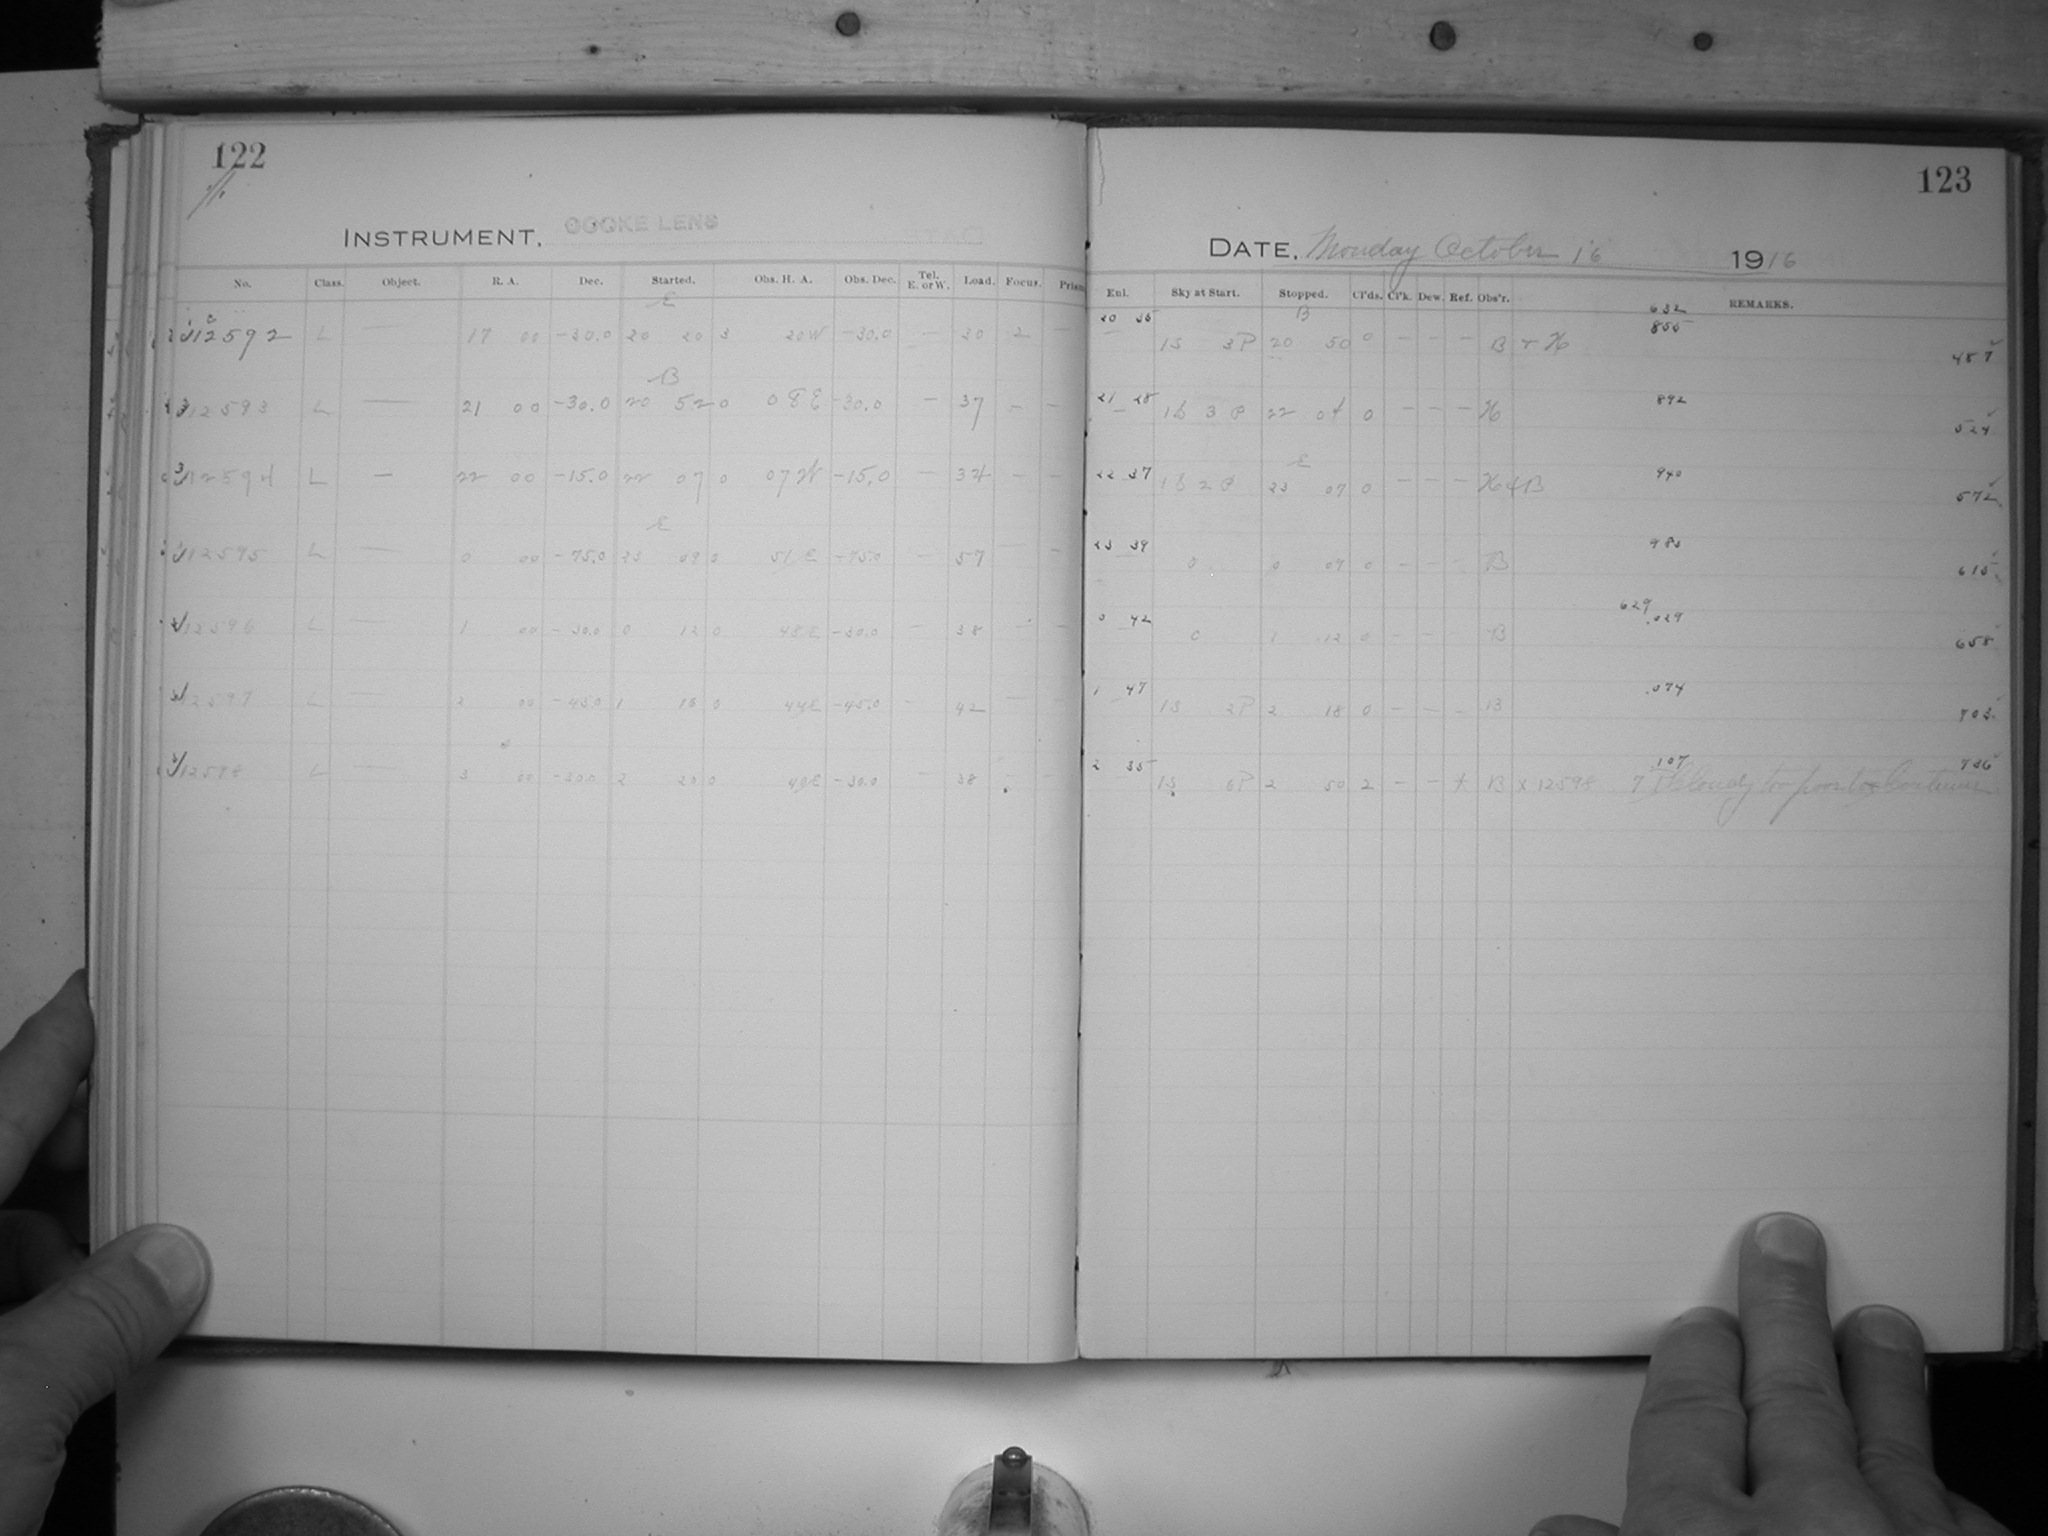 122
INSTRUMENT, COOKE LENS
No. Class. Object. R. A. Dec. Started. Obs. H. A. Obs. Dec. Tel. E. or W. Load. Focus. Prism
E
12592 L — 17 00 -30.0 20 20 3 20W -30.0 — 30 2 —
B
12593 L — 21 00 -30.0 20 52 0 08E -30.0 — 37 — —
12594 L — 22 00 -15.0 22 07 0 07W -15.0 — 34 — —
E
12595 L — 0 00 -75.0 23 09 0 51E -75.0 — 57 — —
12596 L — 1 00 -30.0 0 12 0 48E -30.0 — 38 — —
12597 L — 2 00 -45.0 1 15 0 44E -45.0 — 42 — —
12598 L — 3 00 -30.0 2 20 0 40E -30.0 — 38 — —
123
DATE, Monday October 16 1916
Enl. Sky at Start. Stopped. Cl'ds. Cl'k. Dew. Ref. Obs'r. REMARKS.
B 632
20 35 1S 3P 20 50 0 — — — B & H 855 487
21 28 1S 3P 22 04 0 — — — H 892 524
E
22 37 1S 2P 23 07 0 — — — H & B 940 572
23 39 0 0 09 0 — — — B 983 615
629
0 42 0 1 12 0 — — B .029 658
1 47 1S 2P 2 18 0 — — — B .074 703
2 35 1S 5P 2 50 2 — — + B x 12598 .107 736
Cloudy too poor to continue